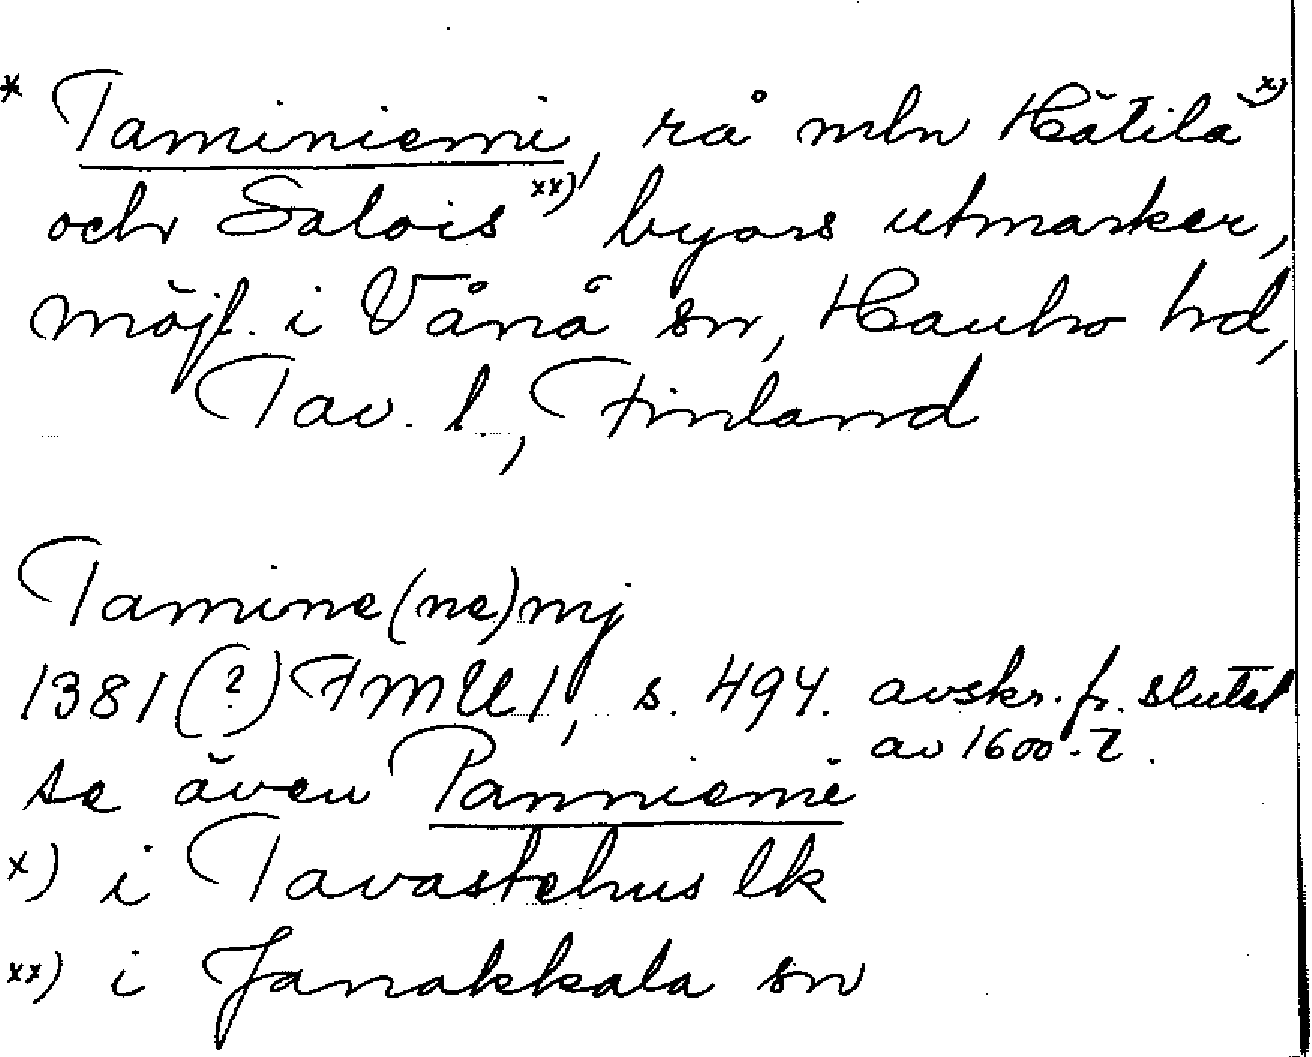 * Taminiemi, rå mln Hätilä x)
och Salois xx) byars utmarker,
möjl. i Vånå sn, Hauho hd,
Tav. l, Finland
Tamine(ne)mj
1381(?) FMU 1, s. 494. avskr. fr. slutet
av 1600-t.
se även Panniemi
x) i Tavastehus lk
xx) i Janakkala sn